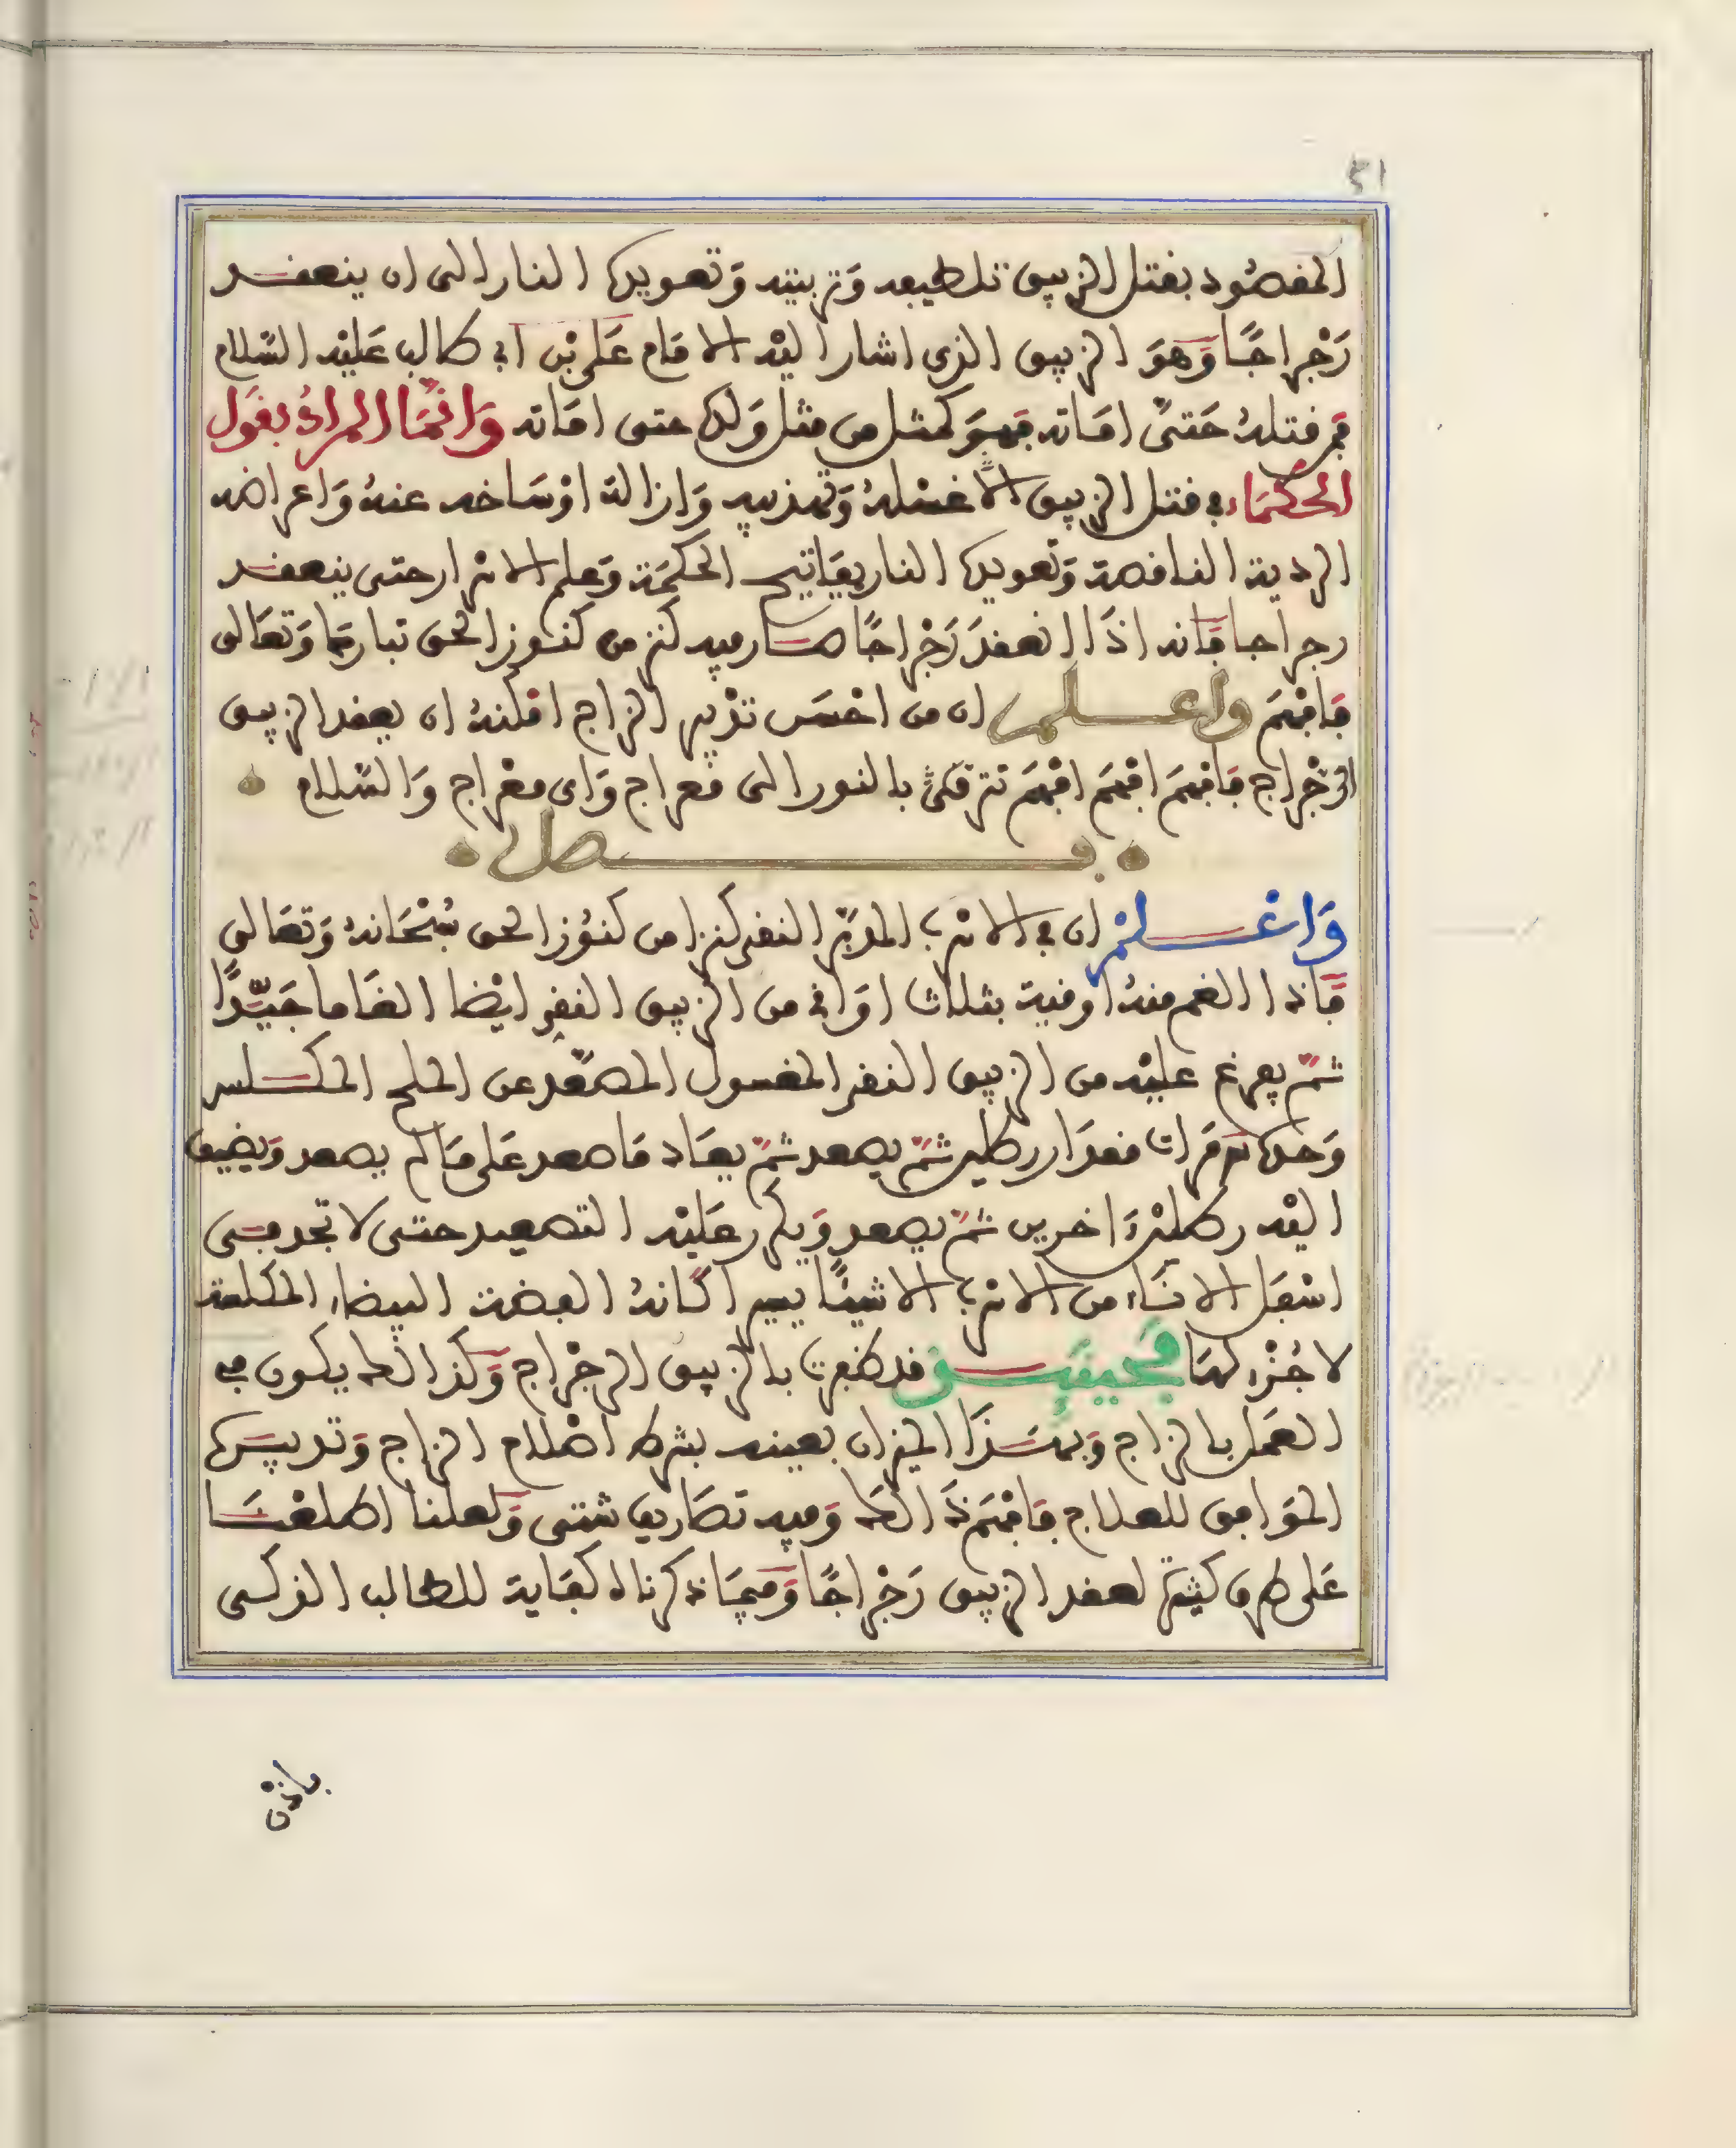 ٥١
المقصود بقتل الزيبق تلطيفه وتربيته وتعويده النار الى ان ينعقد
رَجْراجًا وَهوَ الزيبق الذى اشار اليْه الامَام عَلى بْن ابى طالب عَليْه السّلام
فمر قتلهُ حَتىّ امَاته فهوَ كمثل من مثل وَلده حتى امَاته وَانّمَا المرادُ بقوَل
الحكمَاء فى قتل الزيبق الا غسْلهُ وَتهذيبه وَازالة اوْسَاخه عنهُ وَاعراضه
الردية الناقصة وَتعويده النار بمفاتيح الحكمَة وَعلم الاسْرار حتى ينعقد
رجراجا فَانه اذَا انعقدَ رَجْراجًا صَار فيه كنز من كنوز الحق تبارك وَتعَالى
فَافهَم واعلم ان من احْسَن تدْبير الزاج امْكنهُ ان يعقد الزيبق
الرّجْراج فافهَم افهَم افهَم تترقىّ بالنور الى معراج وَاى معْراج وَالسّلام
فصل
وَاعْلمْ ان فى الاسْرب المدبّر النقى كنزا من كنوُز الحق سُبْحَانهُ وَتعَالى
فَاذا الغم منهُ اوقية بثلاث اوَاقى من الزيبق النقى ايْضا الغَاما جَيّدًا
ثمّ يفرغ عليْه من الزيبق النقى المغسول المصّعد عن الملح المكلس
وَحدَه مَرات مقدَار رطلين ثمّ يصعد ثمّ يعَاد مَا صعد عَلى مَا لم يصعد وَيضيف
اليْه رطليْن اخرين ثمّ يصعد وَيكرر عَليْه التصعيد حتى لا تجد فى
اسْفل الانَاء من الاسْرب الا شيئًا يسيرا كَانهُ الفضة البيضاء المكلسة
لا جُزْء لهَا فحينَئِذ قد ظفرت بالزيبق الرجْراج وَكذالك يكون فى
العمَل بالزاج وَبهَذَا الميزان بعينه بشرط اصْلاح الزاج وَتدبيره
الموَافق للعلاج فافهَم ذَالك وَفيه تصَاريف شتى وَلعلنا اطلعْنَا
عَلى طرق كثيرة لعقد الزيبق رَجْراجًا وَفيمَا ذكرناه كفَاية للطالب الذكى
باذن